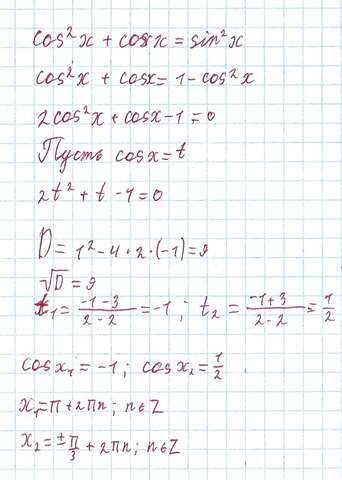 cos²x + cosx = sin²x
cos²x + cosx = 1 - cos²x
2cos²x + cosx - 1 = 0
Пусть cosx = t
2t² + t - 1 = 0
D = 1² - 4 · 2 · (-1) = 9
√D = 9
t₁ = (-1 - 3)/(2 - 2) = -1 ; t₂ = (-1 + 3)/(2 - 2) = 1/2
cosx₁ = -1 ; cosx₂ = 1/2
x₁ = π + 2πn ; n∈Z
x₂ = ±π/3 + 2πn ; n∈Z